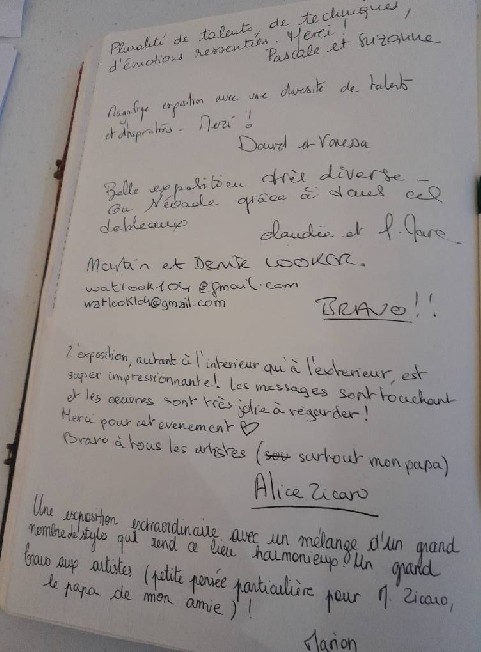 Pluralité de talents, de techniques,
d'émotions ressenties. Merci !
Pascale et Suzanne
Magnifique exposition avec une diversité de talents
et d'inspirations - Merci !
David et Vanessa
Belle exposition très diverse -
On grâce à tous ces
tableaux
Claudie et
Martin et Denise
watlook104@gmail.com
watlook104@gmail.com
BRAVO !!
L'exposition, autant à l'interieur qu'à l'exterieur, est
super impressionnante! Les messages sont touchant
et les œuvres sont très jolie à regarder!
Merci pour cet evenement ♡
Bravo à tous les artistes (surtout mon papa)
Alice Zicaro
Une exposition extraordinaire avec un mélange d'un grand
nombre de styles qui rend ce lieu harmonieux. Un grand
bravo aux artistes (petite pensée particulière pour M. Zicaro,
le papa de mon amie) !
Marion